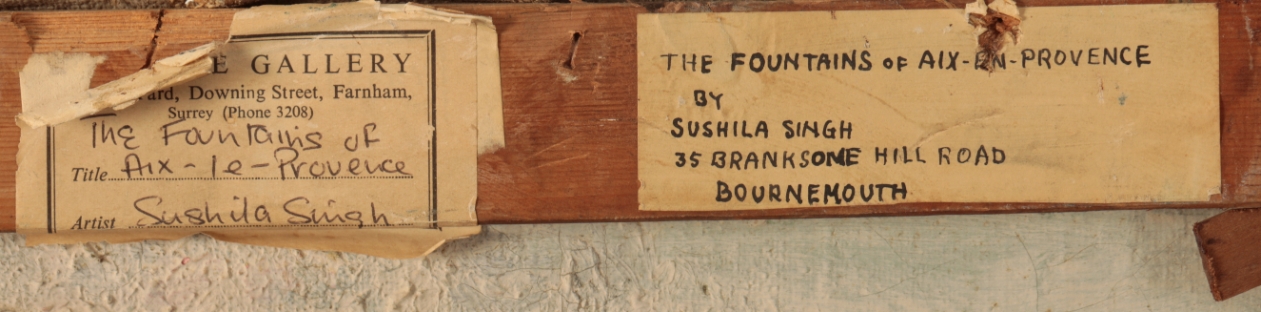 E GALLERY
ard, Downing Street, Farnham,
Surrey (Phone 3208)
The Fountains of
Title Aix-le-Provence
Artist Sushila Singh
THE FOUNTAINS OF AIX-EN-PROVENCE
BY
SUSHILA SINGH
35 BRANKSOME HILL ROAD
BOURNEMOUTH